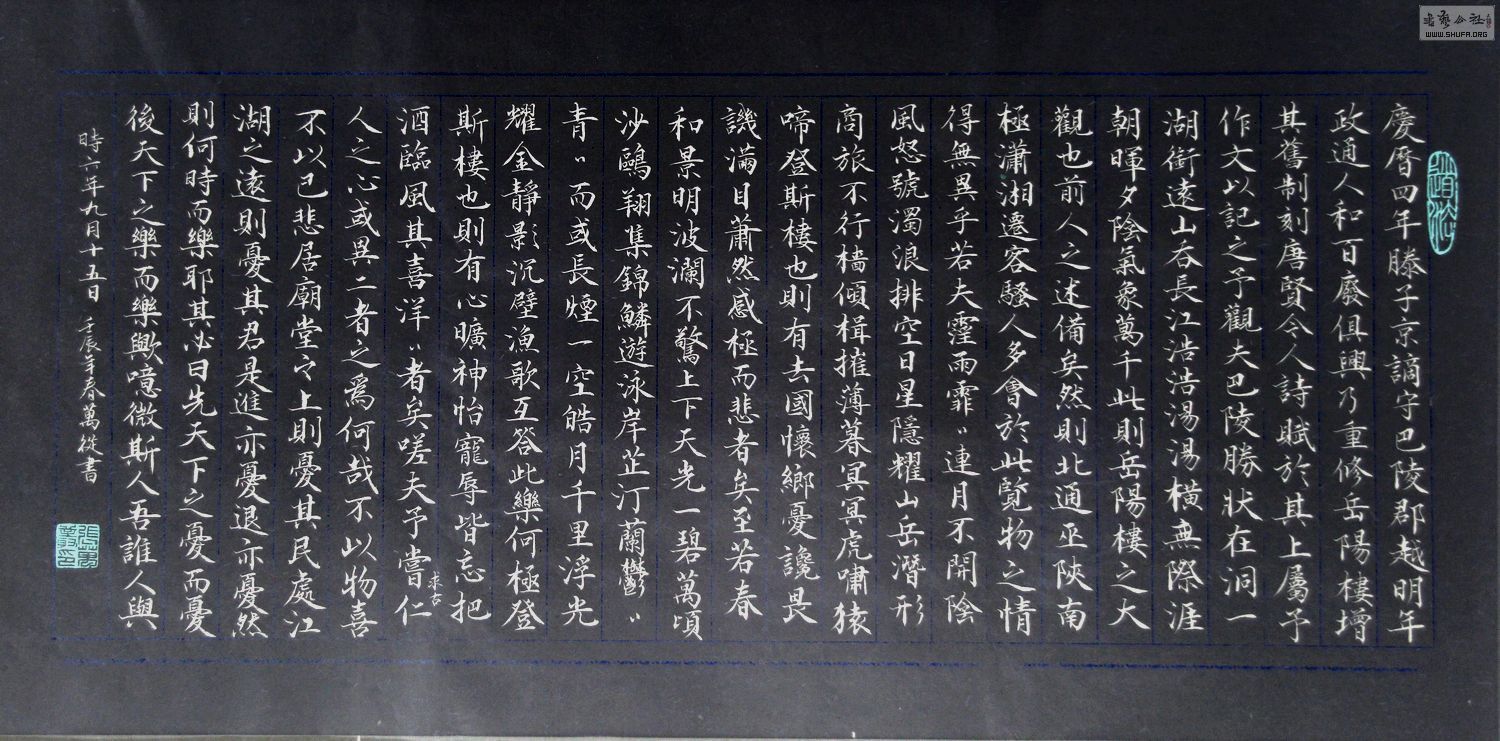 慶曆四年滕子京謫守巴陵郡越明年
政通人和百廢俱興乃重修岳陽樓增
其舊制刻唐賢今人詩賦於其上屬予
作文以記之予觀夫巴陵勝狀在洞一
湖銜遠山吞長江浩浩湯湯橫無際涯
朝暉夕陰氣象萬千此則岳陽樓之大
觀也前人之述備矣然則北通巫陝南
極瀟湘遷客騷人多會於此覽物之情
得無異乎若夫霪雨霏〻連月不開陰
風怒號濁浪排空日星隱耀山岳潛形
商旅不行檣傾楫摧薄暮冥冥虎嘯猿
啼登斯樓也則有去國懷鄉憂讒畏
譏滿目蕭然感極而悲者矣至若春
和景明波瀾不驚上下天光一碧萬頃
沙鷗翔集錦鱗遊泳岸芷汀蘭鬱〻
青〻而或長煙一空皓月千里浮光
耀金靜影沉璧漁歌互答此樂何極登
斯樓也則有心曠神怡寵辱皆忘把
酒臨風其喜洋〻者矣嗟夫予嘗仁
求古
人之心或異二者之爲何哉不以物喜
不以己悲居廟堂之上則憂其民處江
湖之遠則憂其君是進亦憂退亦憂然
則何時而樂耶其必曰先天下之憂而憂
後天下之樂而樂歟噫微斯人吾誰人與
時六年九月十五日 壬辰年春萬從書
書藝公社
WWW.SHUFA.ORG